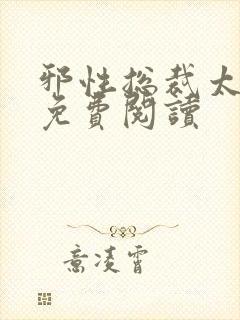 邪性总裁太
免費閱讀
意凌霄